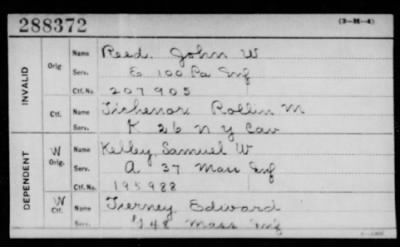 288372 (3-M-4)
INVALID
Orig
Name Reed, John W
Serv. E 100 Pa Inf
Ctf. No. 207905
Ctf.
Name Tichenor Rollin M
Serv. K 26 N Y Cav
DEPENDENT
W
Orig.
Name Kelley, Samuel W
Serv. A 37 Mass Inf
Ctf. No. 195988
W
Ctf.
Name Tierney Edward
Serv. 48 Mass Inf